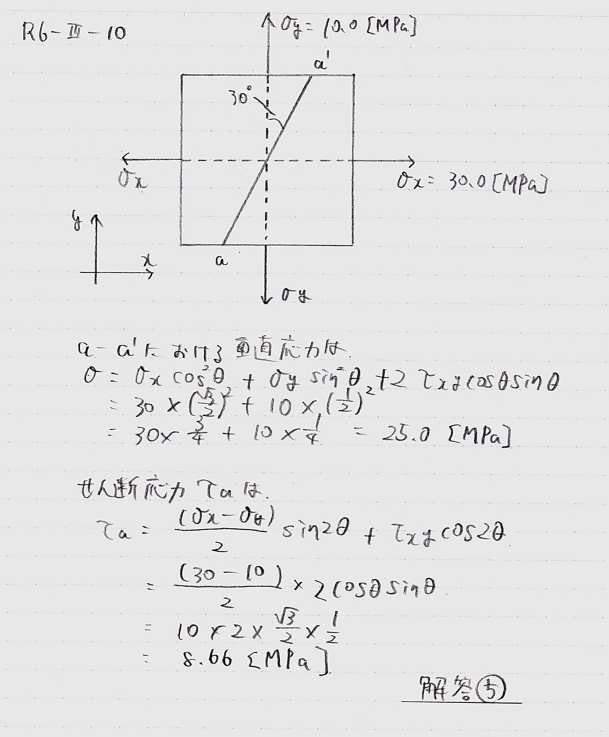 R6-Ⅲ-10
σy = 10.0 [MPa]
a'
30°
σx
σx = 30.0 [MPa]
y
x
a
σy
a-a'における垂直応力は、
σ = σx cos²θ + σy sin²θ + 2 τxy cosθ sinθ
= 30 × (√3/2)² + 10 × (1/2)²
= 30 × 3/4 + 10 × 1/4 = 25.0 [MPa]
せん断応力 τa は、
τa = (σx - σy)/2 sin2θ + τxy cos2θ
= (30 - 10)/2 × 2 cosθ sinθ
= 10 × 2 × √3/2 × 1/2
= 8.66 [MPa]
解答⑤